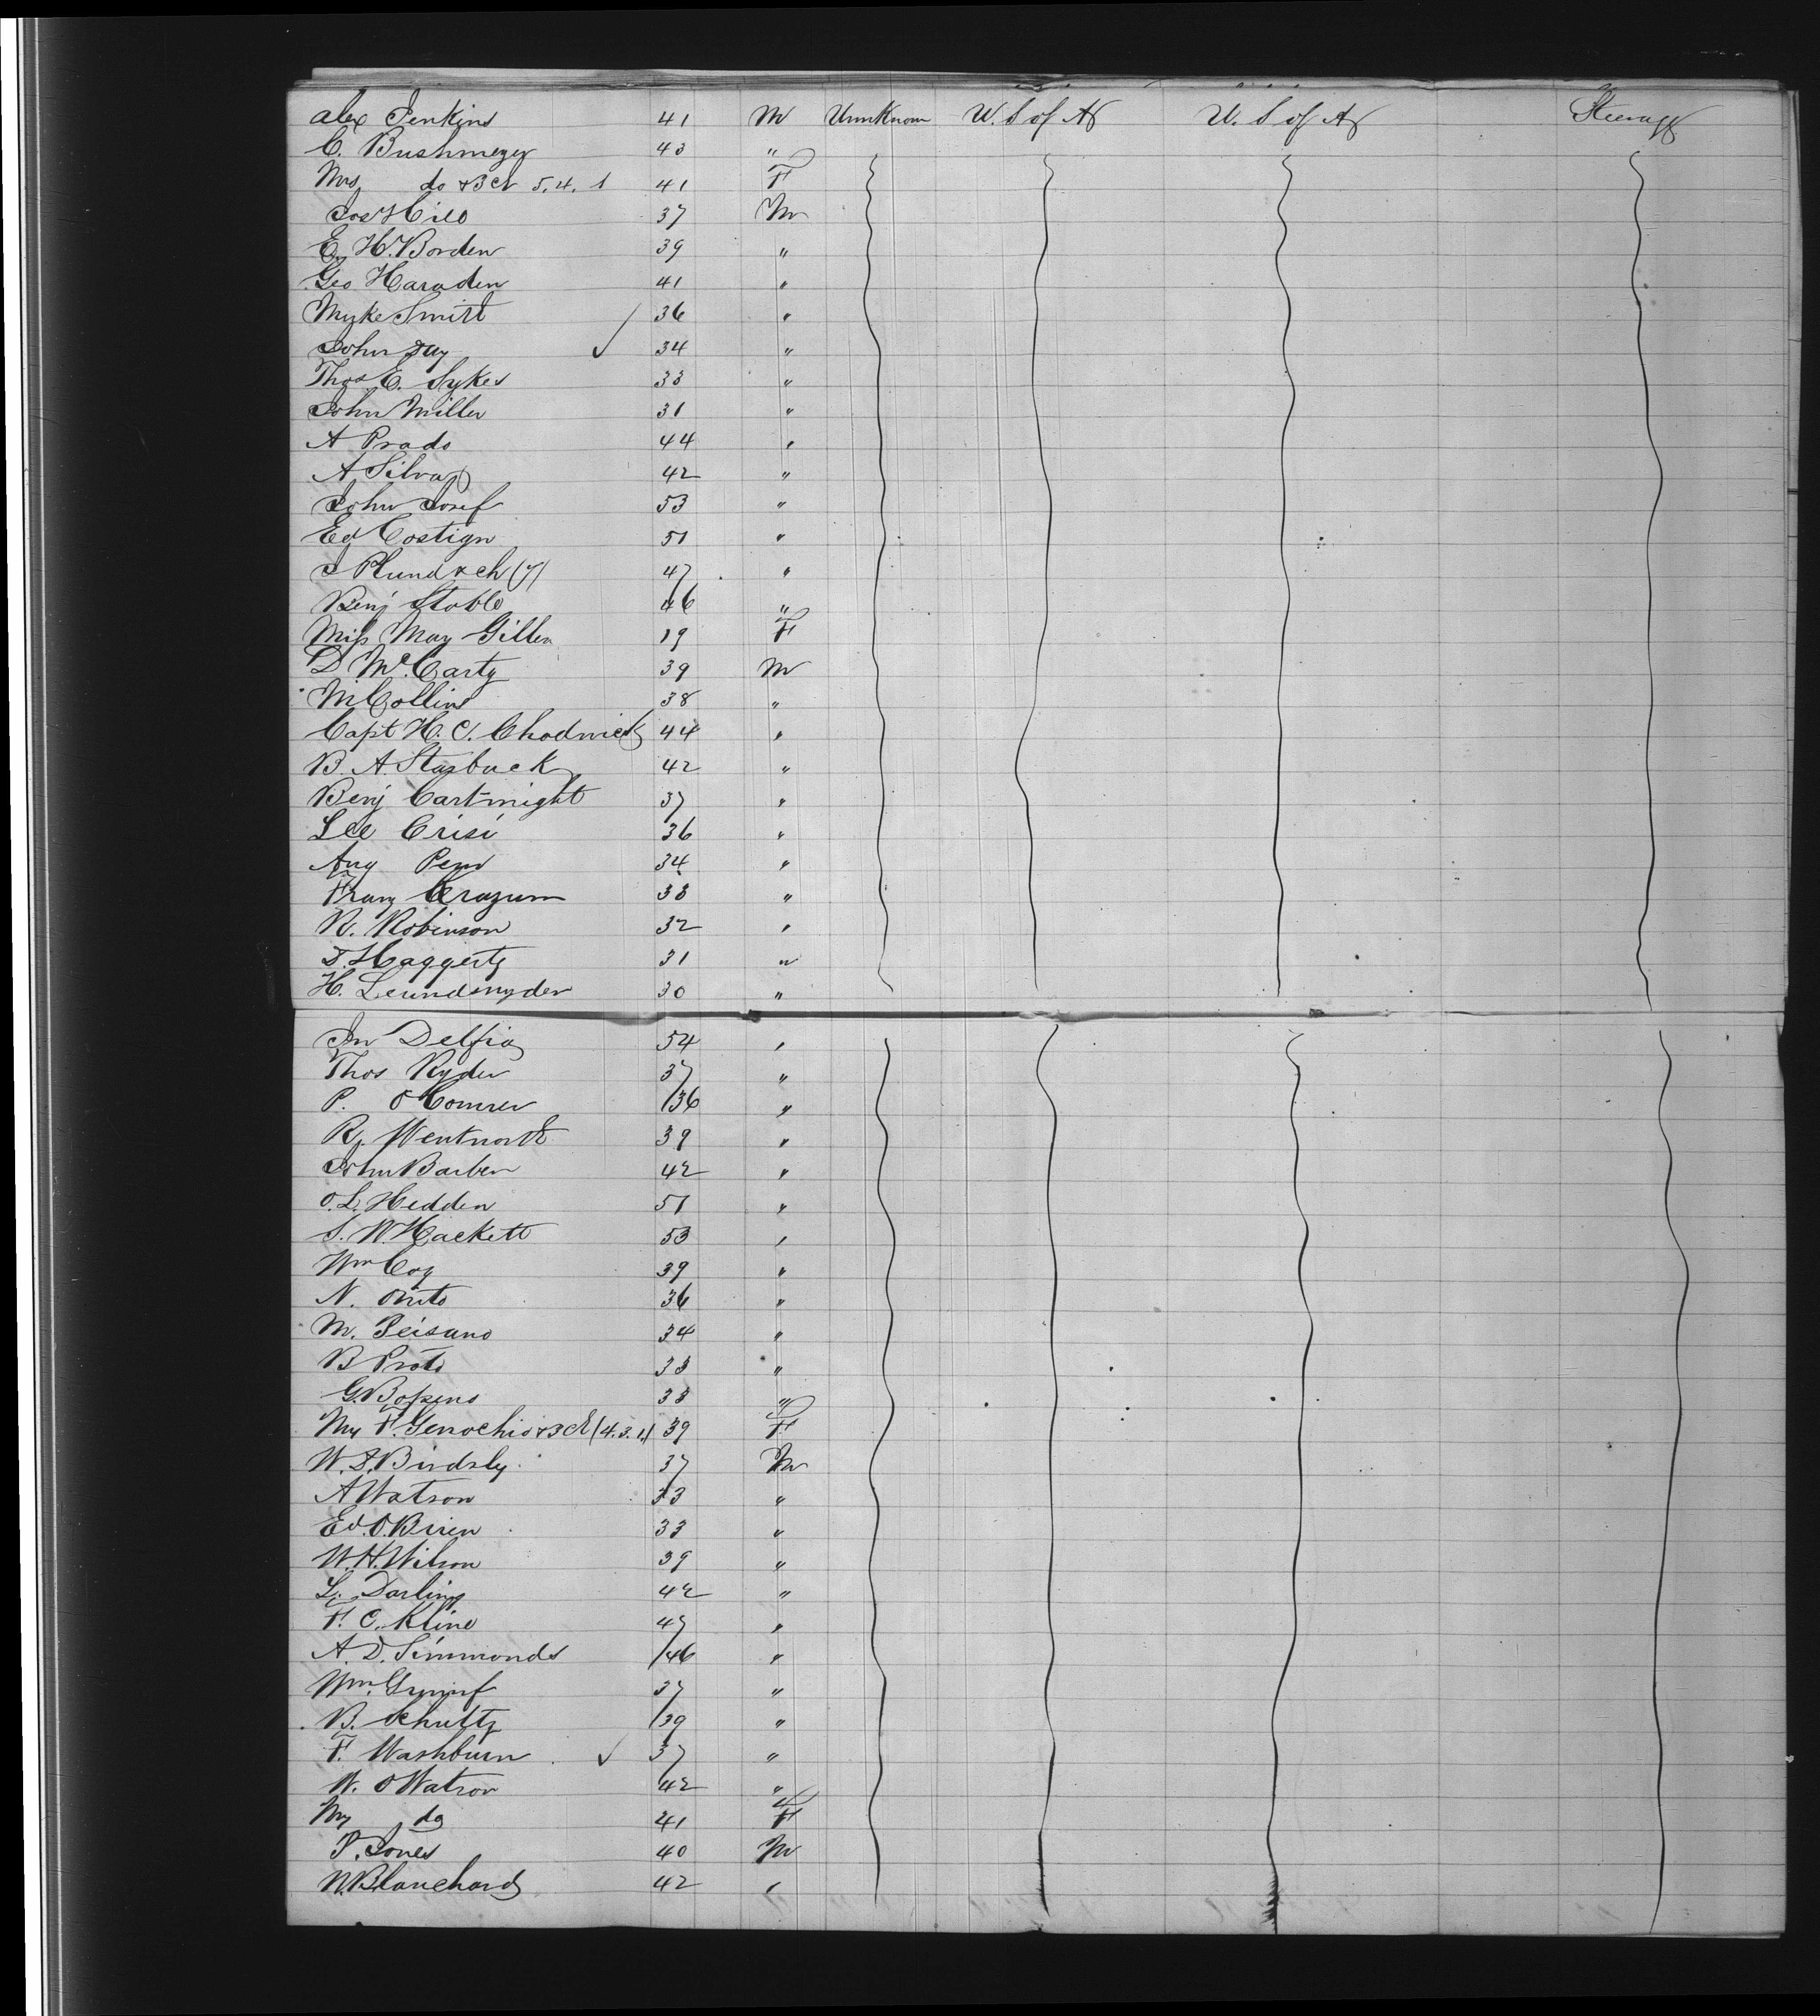 Alex Jenkins 41 M Unnknown U.S of A U.S of A Steerage
C. Bushmeyer 43 "
Mrs do & 3 ch 5. 4. 1 41 F
Jos Hill 37 M
E. H. Borden 39 "
Geo Haraden 41 "
Myke Smith 36 "
John 34 "
Thos E. Sykes 33 "
John Miller 31 "
A Prado 44 "
A Silva 42 "
John Josef 53 "
Ed Costign 51 "
J Plund & ch (7) 47 "
Benj Stoble 46 "
Miss May Gillen 19 F
D McCarty 39 M
M Collins 38 "
Capt H. C. Chadwick 44 "
B. A. Starbuck 42 "
Benj Cartwright 37 "
Lee Crisi 36 "
Aug 34 "
Franz 33 "
R. Robinson 32 "
T. Haggerty 31 "
H. Leundsnyder 30 "
Jn Delfia 54 "
Thos Ryder 37 "
P. O Conner 36 "
R. Wentworth 39 "
John Barber 42 "
O. L. Hedden 51 "
S. W. Hackett 53 "
Wm Coy 39 "
N. Onito 36 "
M. Peisano 34 "
B Proto 33 "
G. 33 "
Mrs F. Genochio & 3 ch (4. 3. 1) 39 F
W. S. Birdsly 37 M
A Watson 33 "
Ed. O. Brien 33 "
W. H. Wilson 39 "
L. Darling 42 "
F. C. Kline 47 "
A. D. Simmonds 46 "
Wm. 37 "
B. Schultz 39 "
F. Washburn 37 "
W. O Watson 42 "
Mrs do 41 F
P. Jones 40 M
N. Blanchard 42 "